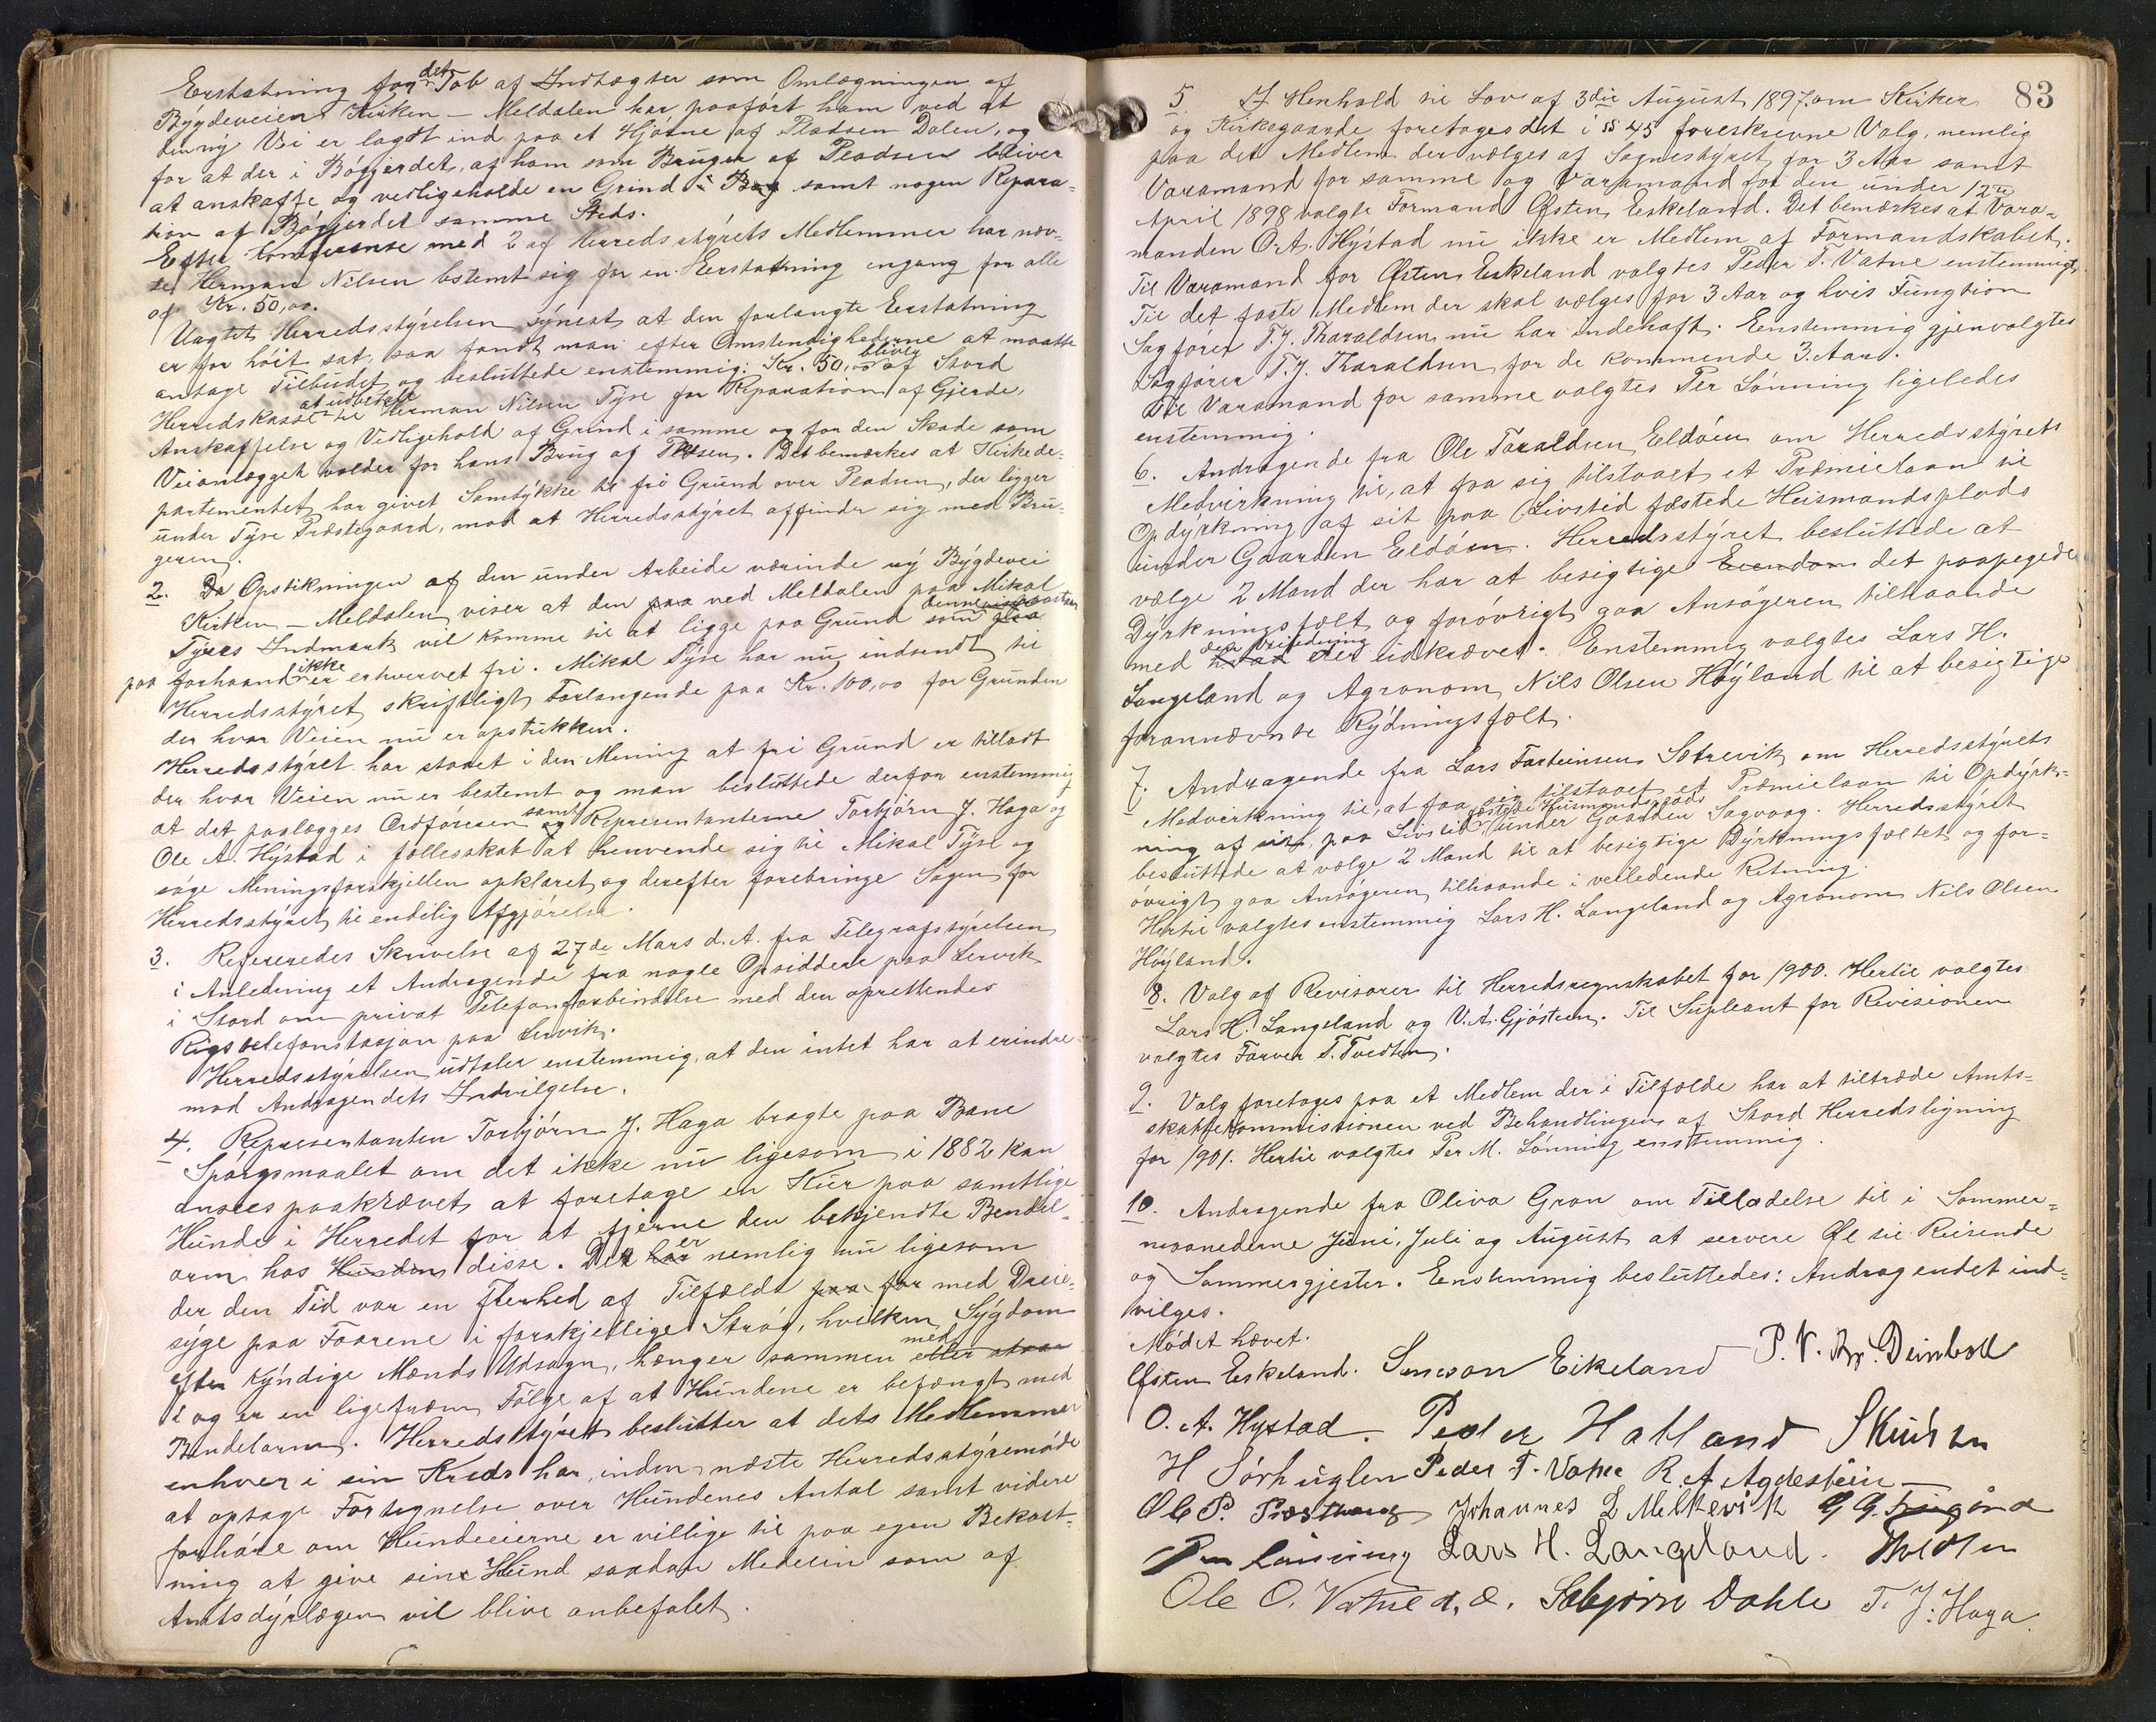 Erstatning for det Tab af Indtægter som Omlægningen af
Bygdeveien Kirken - Meldalen har paaført ham ved at
den ny Vei er lagdt ind paa et Hjørne af Pladsen Dalen, og
for at der i Bøgjerdet, af ham som Bruger af Pladsen bliver
at anskaffe og vedligeholde en Grind i Bøg samt nogen Repara-
tion af Bøgjerdet samme Steds.
Efter Konferense med 2 af Herredsstyrets Medlemmer har næv-
te Herman Nilsen bstemt sig for en Eerstatning engang for alle
af Kr. 50,00.
Uagtet Herredsstyrelsen synest at den forlangte Eerstatning
er for høit sat, saa fandt man efter Omstendighederne at maatte
antage Tilbudet og besluttede enstemmig: Kr. 50,00 bliver af Stord
Herredskasse at udbetale til Herman Nilsen Tyse for Reparation af Gjerde,
Anskaffelse og Vedligehold af Grind i samme og for den Skade som
Veianlægget volder for hans Brug af Pladsen. Det bemærkes at Kirkede-
partementet har givet Samtykke til fri Grund over Pladsen, der ligger
under Tyse Præstegaard, mod at Herredsstyret affinder sig med Bru-
geren.
2. Da Opstikningen af den under Arbeide værinde ny Bygdevei
Kirken - Meldalen viser at den paa ved Meldalen paa Mikal
Tyses Indmark vil komme til at ligge paa Grund som paa denne
paa forhaand ikke er erhvervet fri. Mikal Tyse har nu indsendt til
Herredsstyret skriftligt Forlangende paa Kr. 100,00 for Grunden
der hvor Veien nu er opstukken.
Herredsstyret har staaet i den Mening at fri Grund er tilladt
der hvor Veien nu er bestemt og man besluttede derfor enstemmig
at det paalægges Ordføreren samt og Representanterne Torbjørn J. Haga og
Ole A. Hystad i fællesskab at henvende sig til Mikal Tyse og
søge Meningsforskjellen opklaret og derefter forebringe Sagen for
Herredsstyret til endelig Afgjørelse.
3. Refereredes Skrivelse af 27de Mars d.A. fra Telegrafstyrelsen
i Anledning et Andragende fra nogle Opsiddere paa Lervik
i Stord om privat Telefonforbindelse med den oprettendes
Rigstelefonstasjon paa Lervik.
Herredsstyrelsen udtaler enstemmig, at den intet har at erindre
mod Andragendets Indvilgelse.
4. Representanten Torbjørn J. Haga bragte paa Bane
Spørgsmaalet om det ikke nu ligesom i 1882 kan
ansees paakrævet at foretage en Kur paa samtlige
Hunde i Herredet for at fjerne den bekjendte Bendel-
orm hos Hunden disse. Der har er nemlig nu ligesom
der den Tid var en flerhed af Tilfælde paa for med Dreie-
syge paa Faarene i forskjellige Strøg, hvilken Sygdom
efter kyndige Mænds Udsagn, hænger sammen med
i og er en ligefrem Følge af at Hundene er befængt med
Bendelorm. Herredsstyret beslutter at dets Medlemmer
enhver i sin Kreds har, inden næste Herredsstyremøde
at optage Fortegnelse over Hundenes Antal samt videre
forhøre om Hundeeierne er villige til paa egen Bekost-
ning at give sine Hund saadan Medesin som af
Amtsdyrlægen vil blive anbefalet.
83
5. I Henhold til Lov af 3die August 1897 om Kirker
og Kirkegaarde foretages det i §§ 45 foreskrevne Valg, nemlig
paa det Medlem der vælges af Sognestyret for 3 Aar samt
Varamand for samme og Varamand for den under 12te
April 1898 valgte Formand Østen Eskeland. Det bemærkes at Vara-
manden O. A. Hystad nu ikke er Medlem af Formandskabet.
Til Varamand for Østen Eskeland valgtes Peder T. Vatne enstemmigt.
Til det faste Medlem der skal vælges for 3 Aar og hvis Fungtion
Sagfører T. J. Tharaldsen nu har indehaft. Eenstemmig gjenvalgtes
Sagfører T. J. Tharaldsen for de kommende 3 Aar.
Til Varamand for samme valgtes Per Lønning ligeledes
enstemmig.
6. Andragende fra Ole Taraldsen Eldøen om Herredsstyrets
Medvirkning til, at faa sig tilstaaet et Præmielaan til
Opdyrkning af sit paa Livstid fæstede Husmandsplads
under Gaarden Eldøen. Herredsstyret besluttede at
vælge 2 Mand der har at besigtige Eiendom det paapegede
Dyrkningsfælt og forøvrigt gaa Ansøgeren tilhaande
med den Veiledning hvad der udkræves. Enstemmig valgtes Lars H.
Langeland og Agronom Nils Olsen Høyland til at besigtige
forannævnte Rydningsfælt.
7. Andragende fra Lars Farteinsen Sætrevik om Herredsstyrets
Medvirkning til, at faa sig tilstaaet et Præmielaan til Opdyrk-
ning af sit, paa Livstid fæstede Husmandsplads under Gaarden Sagvaag. Herredsstyret
besluttede at vælge 2 Mand til at besigtige Dyrkningsfæltet og for-
øvrigt gaa Ansøgeren tilhaande i veiledende Retning.
Hertil valgtes enstemmig Lars H. Langeland og Agronom Nils Olsen
Høyland.
8. Valg af Revisorer til Herredsregnskabet for 1900. Hertil valgtes
Lars H. Langeland og V. A. Gjøsteen. Til Supleant for Revisionen
valgtes Farver T. Tvedten.
9. Valg foretages paa et Medlem der i Tilfælde har at tiltræde Amts-
skattekommissionen ved Behandlingen af Stord Herredsligning
for 1901. Hertil valgtes Per M. Lønning enstemmig.
10. Andragende fra Oliva Gran om Tilladelse til i Sommer-
maanederne Juni, Juli og August at servere Øl til Reisende
og Sommergjester. Eenstemmig besluttedes: Andragendet ind-
vilges.
Mødet hævet.
Østen Eskeland. Simson Eikeland P. V. Deinboll
O. A. Hystad. Peder Hatland S Knutsen
H Sørhuglen Peder T. Vatne R A Agdestein
Ole P. Johannes L Melkevik
Per Lønning Lars H. Langeland. Tvedten
Ole O. Vatne d, e. Sebjørn Dahle T. J. Haga.